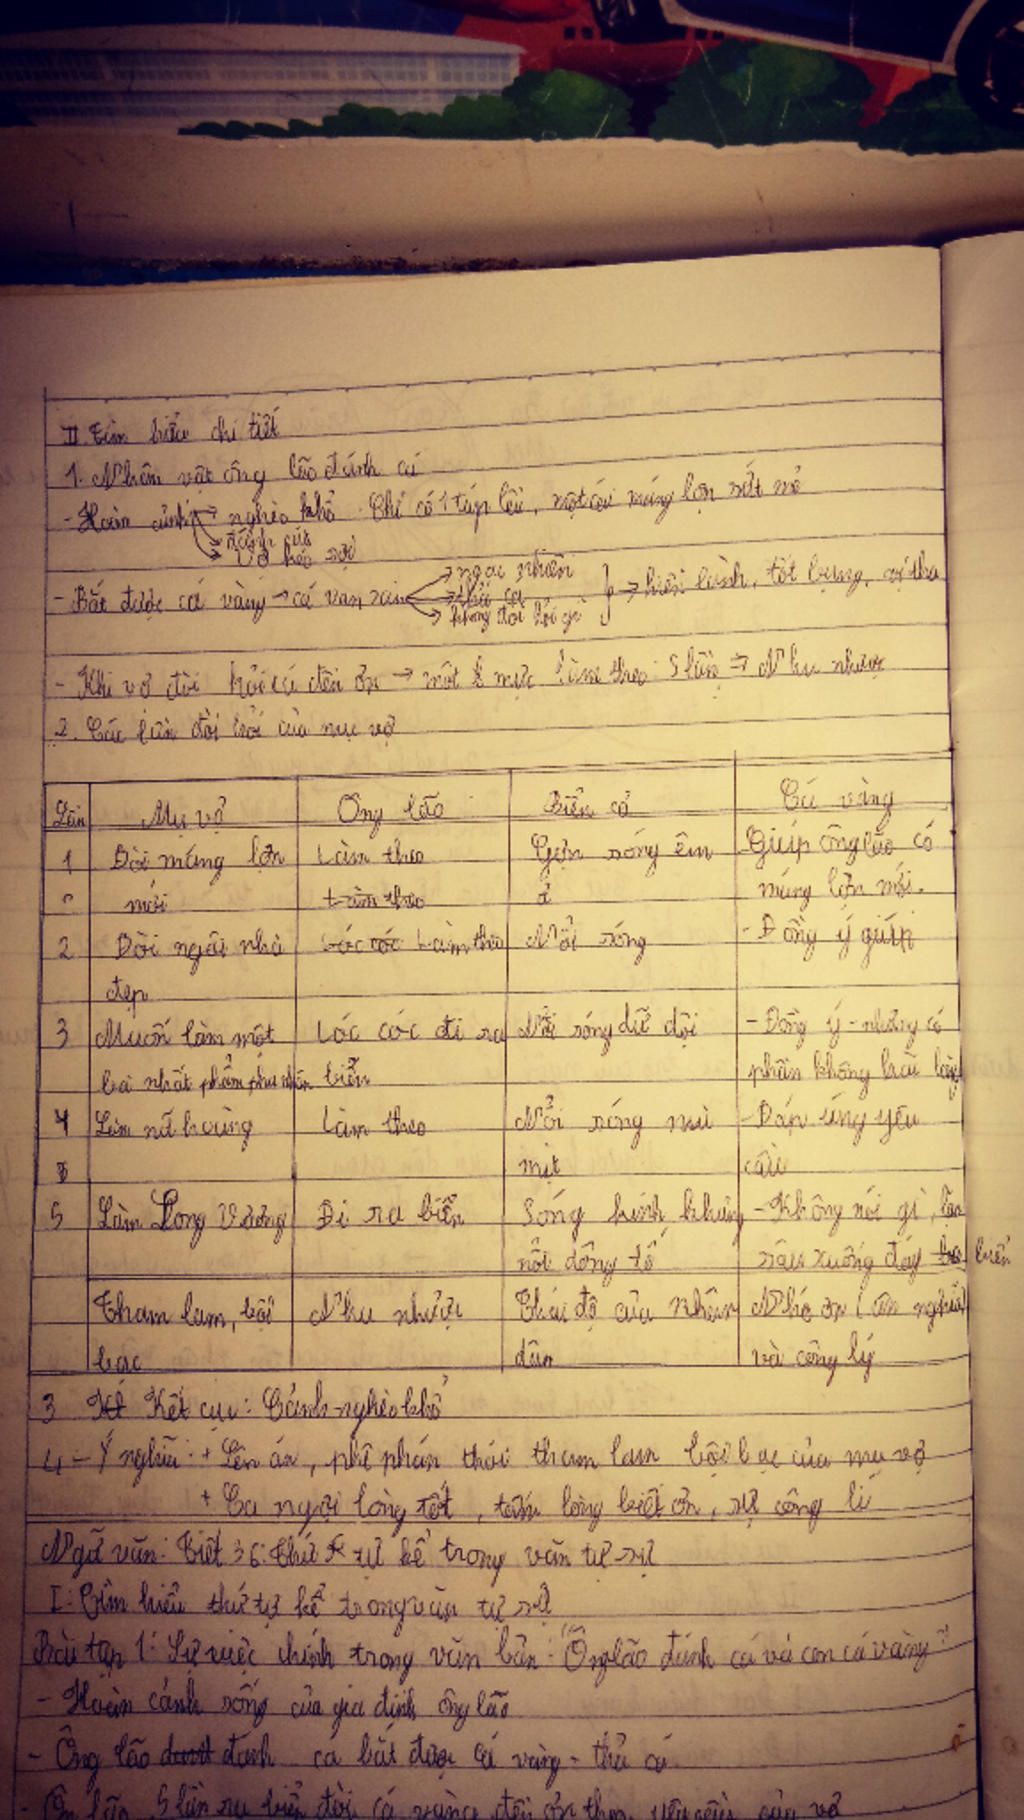 II. Tìm hiểu chi tiết
1. Nhân vật ông lão đánh cá
- Hoàn cảnh → nghèo khổ. Chỉ có 1 túp lều, một cái máng lợn sứt mẻ
→ đánh cá
→ Vợ
- Bắt được cá vàng → cá van xin → ngạc nhiên } → hiền lành, tốt bụng, vị tha
→ thả cá
→ không đòi hỏi gì
- Khi vợ đòi hỏi cá đền ơn → một mực làm theo 5 lần → Nhu nhược
2. Các lần đòi hỏi của mụ vợ
Lần Mụ vợ Ông lão Biển cả Cá vàng
1 Đòi máng lợn Làm theo Gợn sóng êm Giúp ông lão có
mới Làm theo ả máng lợn mới.
2 Đòi ngôi nhà Lóc cóc Làm theo Nổi sóng - Đồng ý giúp
đẹp
3 Muốn làm một Lóc cóc đi ra Nổi sóng dữ dội - Đồng ý - nhưng có
bà nhất phẩm phu nhân biển phần không hài lòng
4 Làm nữ hoàng Làm theo Nổi sóng mù - Đáp ứng yêu
mịt cầu
5 Làm Long Vương Đi ra biển Sóng kinh khủng - Không nói gì, lặn
nổi dông tố sâu xuống đáy biển
Tham lam, bội Nhu nhược Thái độ của nhân Nhớ ơn (ân nghĩa)
bạc dân và công lý
3 Kết cục: Cảnh nghèo khổ
4 - Ý nghĩa: + Lên án, phê phán thói tham lam bội bạc của mụ vợ
+ Ca ngợi lòng tốt, tấm lòng biết ơn, sự công lí
Ngữ văn: Tiết 36: Thứ tự kể trong văn tự sự
I: Tìm hiểu thứ tự kể trong văn tự sự
Bài tập 1: Sự việc chính trong văn bản: "Ông lão đánh cá và con cá vàng"
- Hoàn cảnh sống của gia đình ông lão
- Ông lão đánh đánh cá bắt được cá vàng - thả cá
- Ông lão 5 lần ra biển đòi cá vàng đền ơn theo yêu cầu của vợ